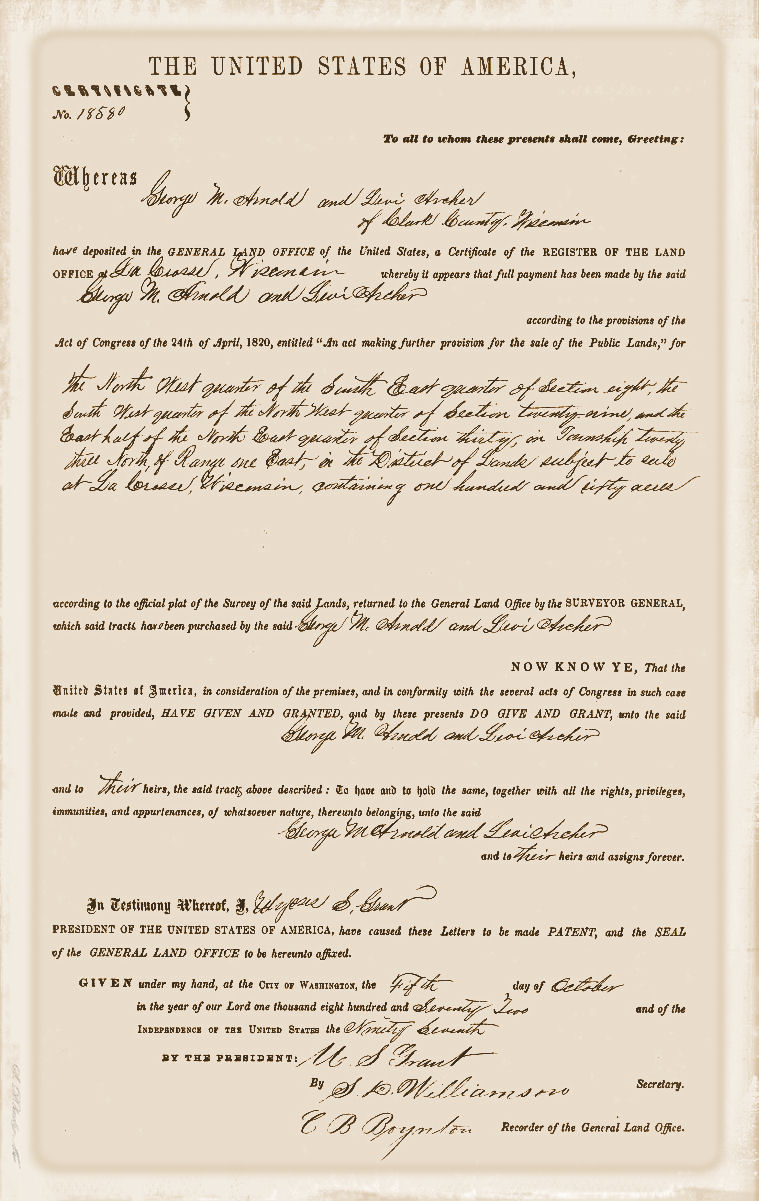 THE UNITED STATES OF AMERICA,
CERTIFICATE
No. 18580
To all to whom these presents shall come, Greeting:
Whereas George M. Arnold and Levi Archer
of Clark County, Wisconsin
have deposited in the GENERAL LAND OFFICE of the United States, a Certificate of the REGISTER OF THE LAND
OFFICE at La Crosse, Wisconsin whereby it appears that full payment has been made by the said
George M. Arnold and Levi Archer
according to the provisions of the
Act of Congress of the 24th of April, 1820, entitled “An act making further provision for the sale of the Public Lands,” for
the North West quarter of the South East quarter of Section eight, the
South West quarter of the North West quarter of Section twenty nine, and the
East half of the North East quarter of Section thirty, in Township twenty
three North, of Range one East, in the District of Lands subject to sale
at La Crosse, Wisconsin, containing one hundred and sixty acres
according to the official plat of the Survey of the said Lands, returned to the General Land Office by the SURVEYOR GENERAL,
which said tracts have been purchased by the said George M. Arnold and Levi Archer
NOW KNOW YE, That the
United States of America, in consideration of the premises, and in conformity with the several acts of Congress in such case
made and provided, HAVE GIVEN AND GRANTED, and by these presents DO GIVE AND GRANT, unto the said
George M. Arnold and Levi Archer
and to their heirs, the said tracts above described: To have and to hold the same, together with all the rights, privileges,
immunities, and appurtenances, of whatsoever nature, thereunto belonging, unto the said
George M Arnold and Levi Archer
and to their heirs and assigns forever.
In Testimony Whereof, I, Ulysses S. Grant
PRESIDENT OF THE UNITED STATES OF AMERICA, have caused these Letters to be made PATENT, and the SEAL
of the GENERAL LAND OFFICE to be hereunto affixed.
GIVEN under my hand, at the CITY OF WASHINGTON, the Fifth day of October
in the year of our Lord one thousand eight hundred and Seventy Two and of the
INDEPENDENCE OF THE UNITED STATES the Ninety Seventh
BY THE PRESIDENT: U S Grant
By S. D. Williamson Secretary.
C B Boynton Recorder of the General Land Office.